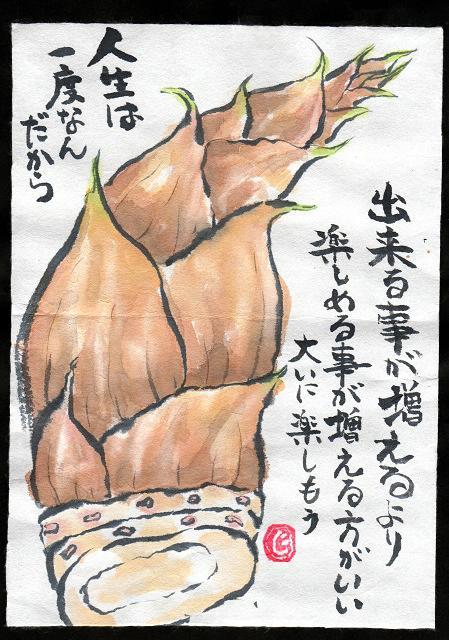 出来る事が増えるより
楽しめる事が増える方がいい
大いに楽しもう
人生は
一度なん
だから